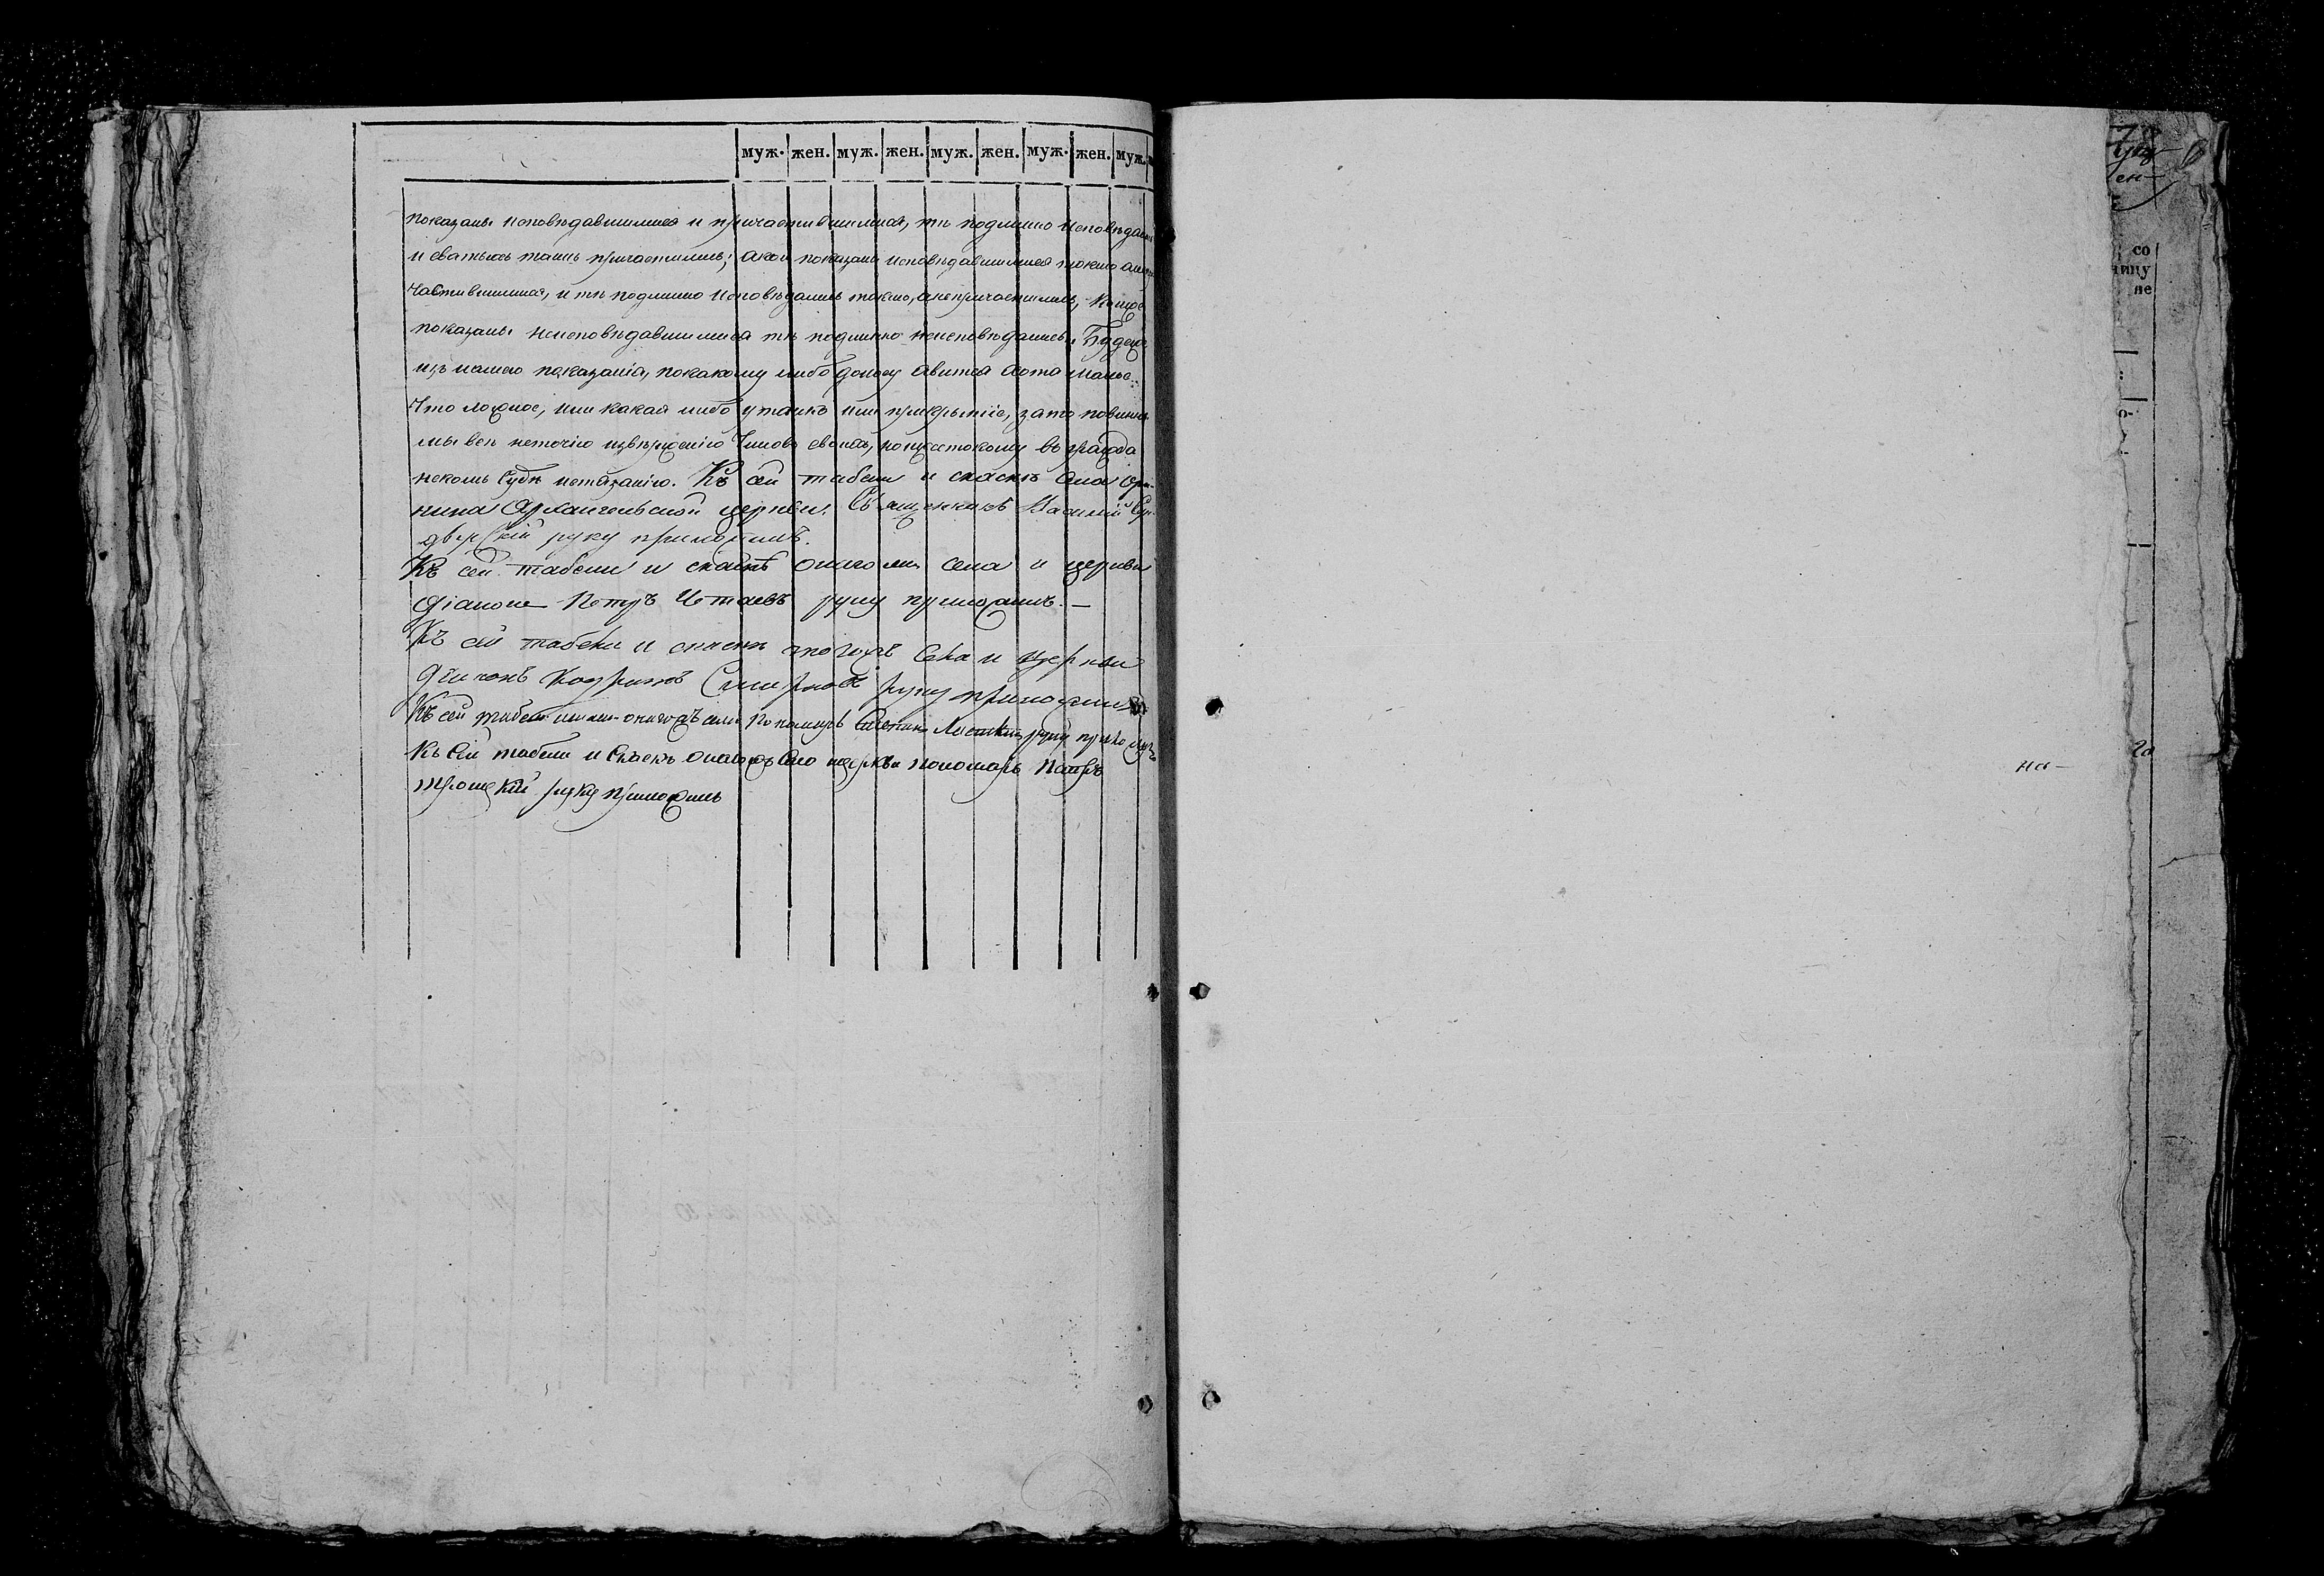 муж. жен. муж. жен. муж. жен. муж. жен. муж.
показаны исповѣдавшимися и причастившимися, тѣ подлинно исповѣдали
и святыхъ таинъ причастились; а кои показаны исповѣдавшимися токмо а непри
частившимися, и тѣ подлинно исповѣдались токмо, а непричастились, которые
показаны неисповѣдавшимися тѣ подлинно неисповѣдались. Буде же
изъ нашего показанія, покакому либо доносу явится хотя малое
что ложное, или какая либо утайка или прикрытіе, за то повинны
мы всѣ неточію изверженію чиновъ своихъ, но и жестокому въ гражда
нскомъ судѣ истязанію. Къ сей табели и сказкѣ села
Архангельской церкви Священникъ Василій
руку приложилъ.
Къ сей табели и сказкѣ онаго же села и церкви
діаконъ Петръ руку приложилъ. —
Къ сей табели и сказкѣ тогожъ села и церкви
дьячокъ Смирновъ руку приложилъ
Къ сей табели онагожъ села пономарь руку приложилъ
Къ сей табели и сказкѣ онагожъ села церкви пономарь Петръ
Троицкій руку приложилъ
со
ницу
не
на—